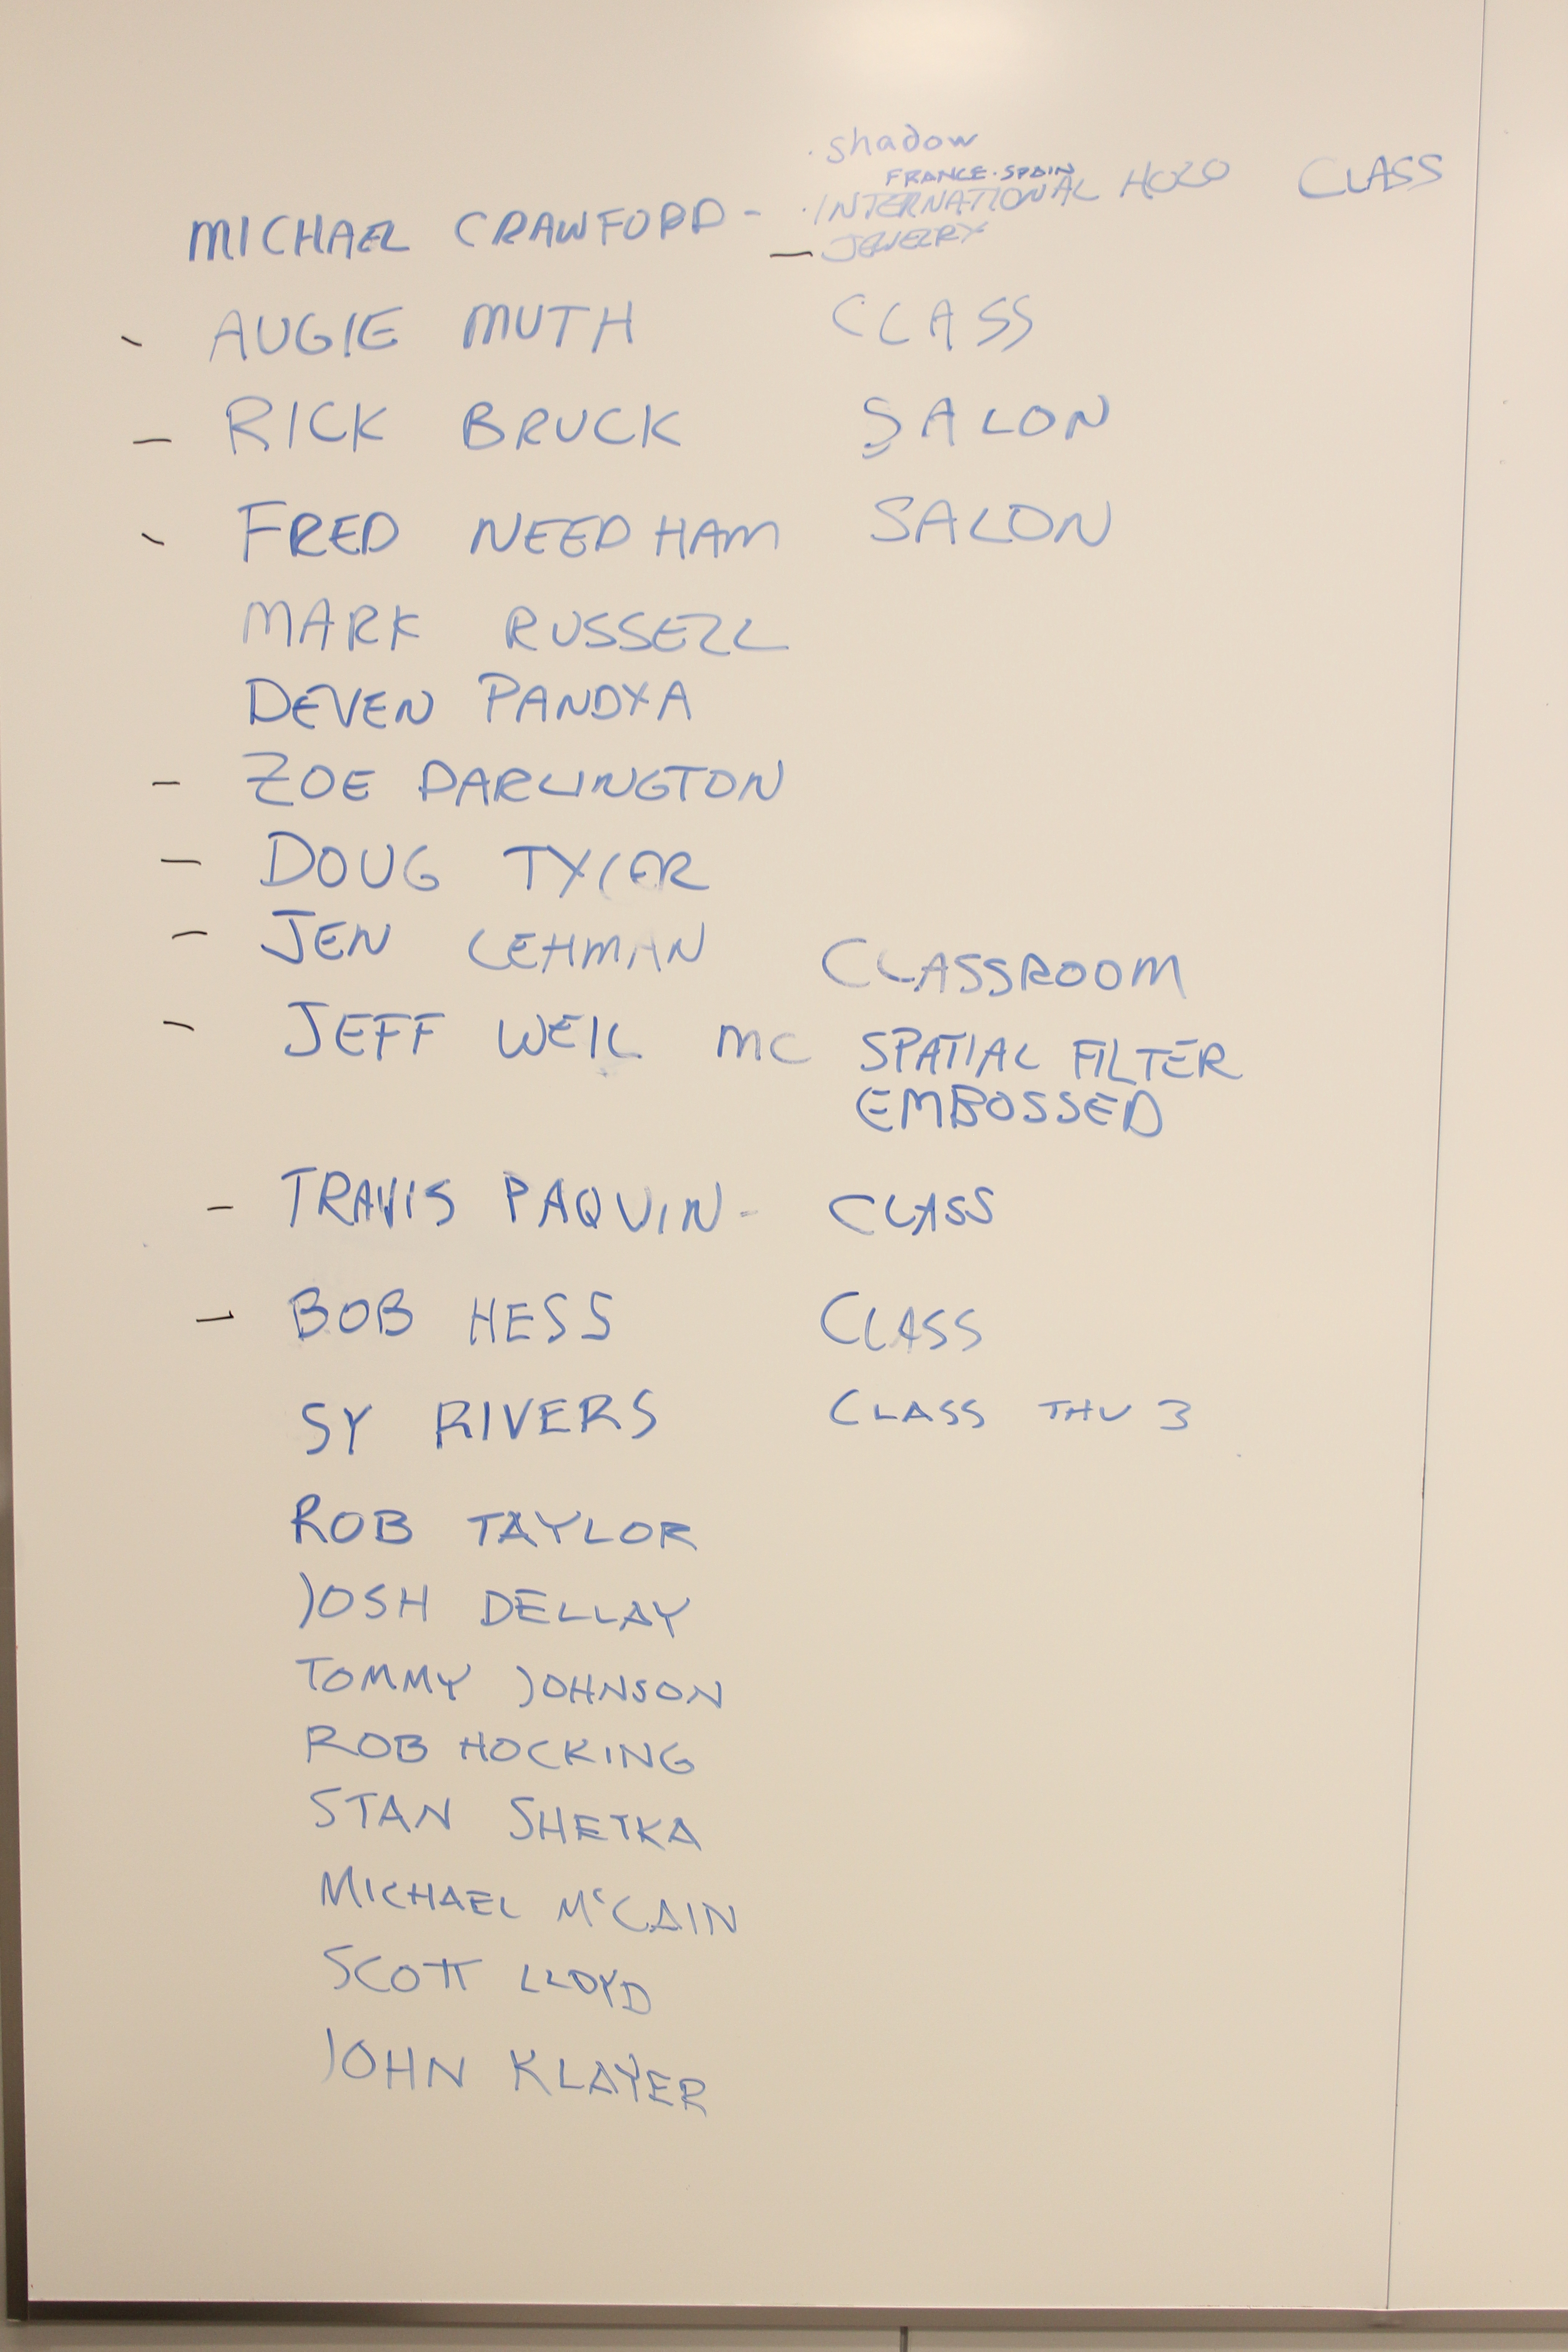 · shadow
FRANCE · SPAIN
MICHAEL CRAWFORD - · INTERNATIONAL HOLO CLASS
— JEWELRY
- AUGIE MUTH CLASS
- RICK BRUCK SALON
- FRED NEEDHAM SALON
MARK RUSSELL
DEVEN PANDYA
- ZOE DARLINGTON
- DOUG TYLER
- JEN LEHMAN CLASSROOM
- JEFF WEIL MC SPATIAL FILTER
EMBOSSED
- TRAVIS PAQUIN - CLASS
- BOB HESS CLASS
SY RIVERS CLASS THU 3
ROB TAYLOR
JOSH DELLAY
TOMMY JOHNSON
ROB HOCKING
STAN SHETKA
MICHAEL McCAIN
SCOTT LLOYD
JOHN KLAYER